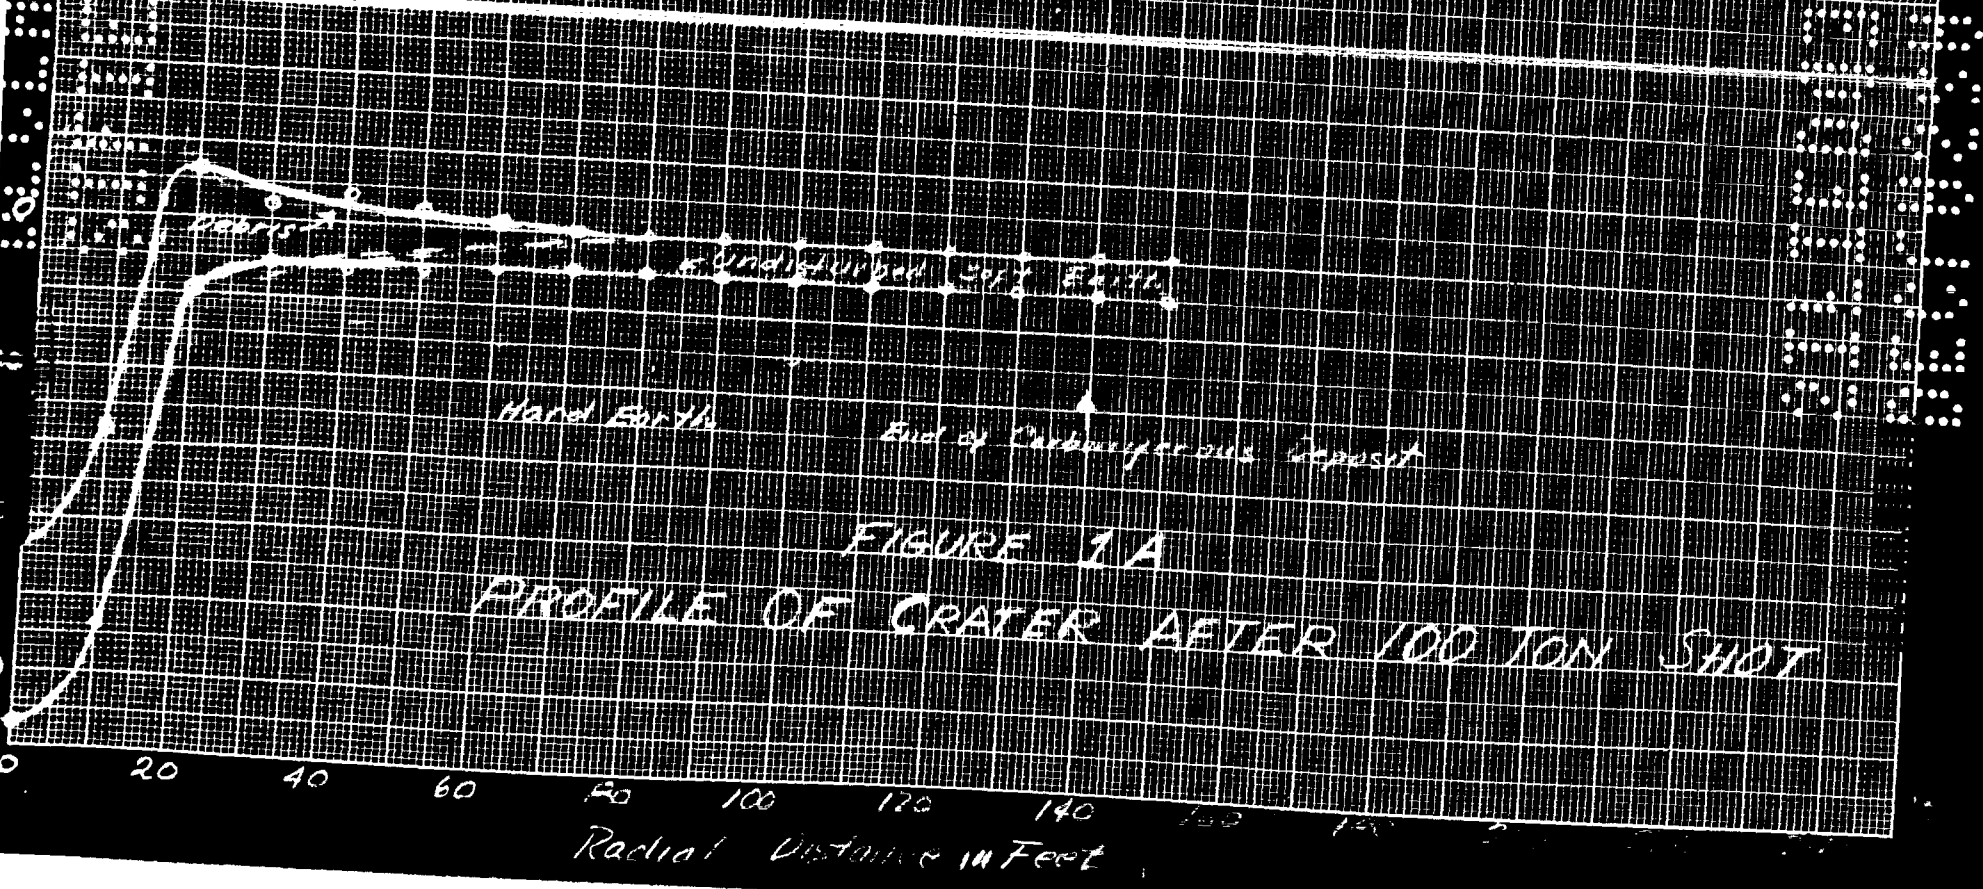 Debris
Undisturbed Soft Earth
Hard Earth
End of Carboniferous Deposit
FIGURE 1A
PROFILE OF CRATER AFTER 100 TON SHOT
0 20 40 60 80 100 120 140
Radial Distance in Feet